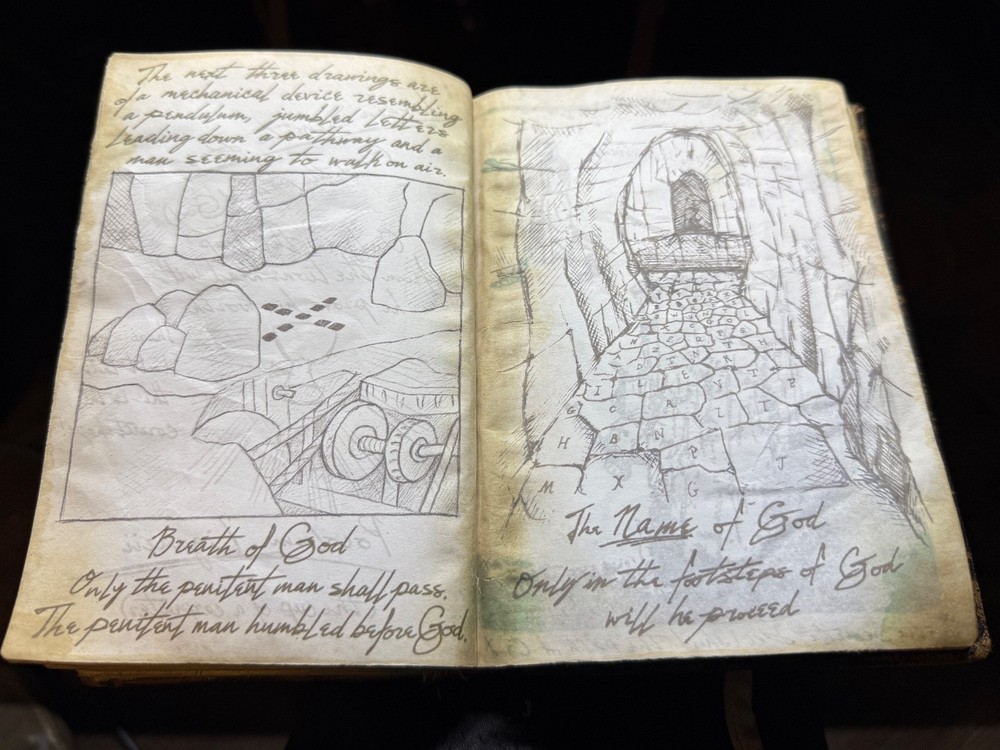 The next three drawings are
of a mechanical device resembling
a pendulum, jumbled letters
leading down a pathway and a
man seeming to walk on air.
Breath of God
Only the penitent man shall pass.
The penitent man humbled before God.
H B N P J
M X G
The Name of God
Only in the footsteps of God
will he proceed